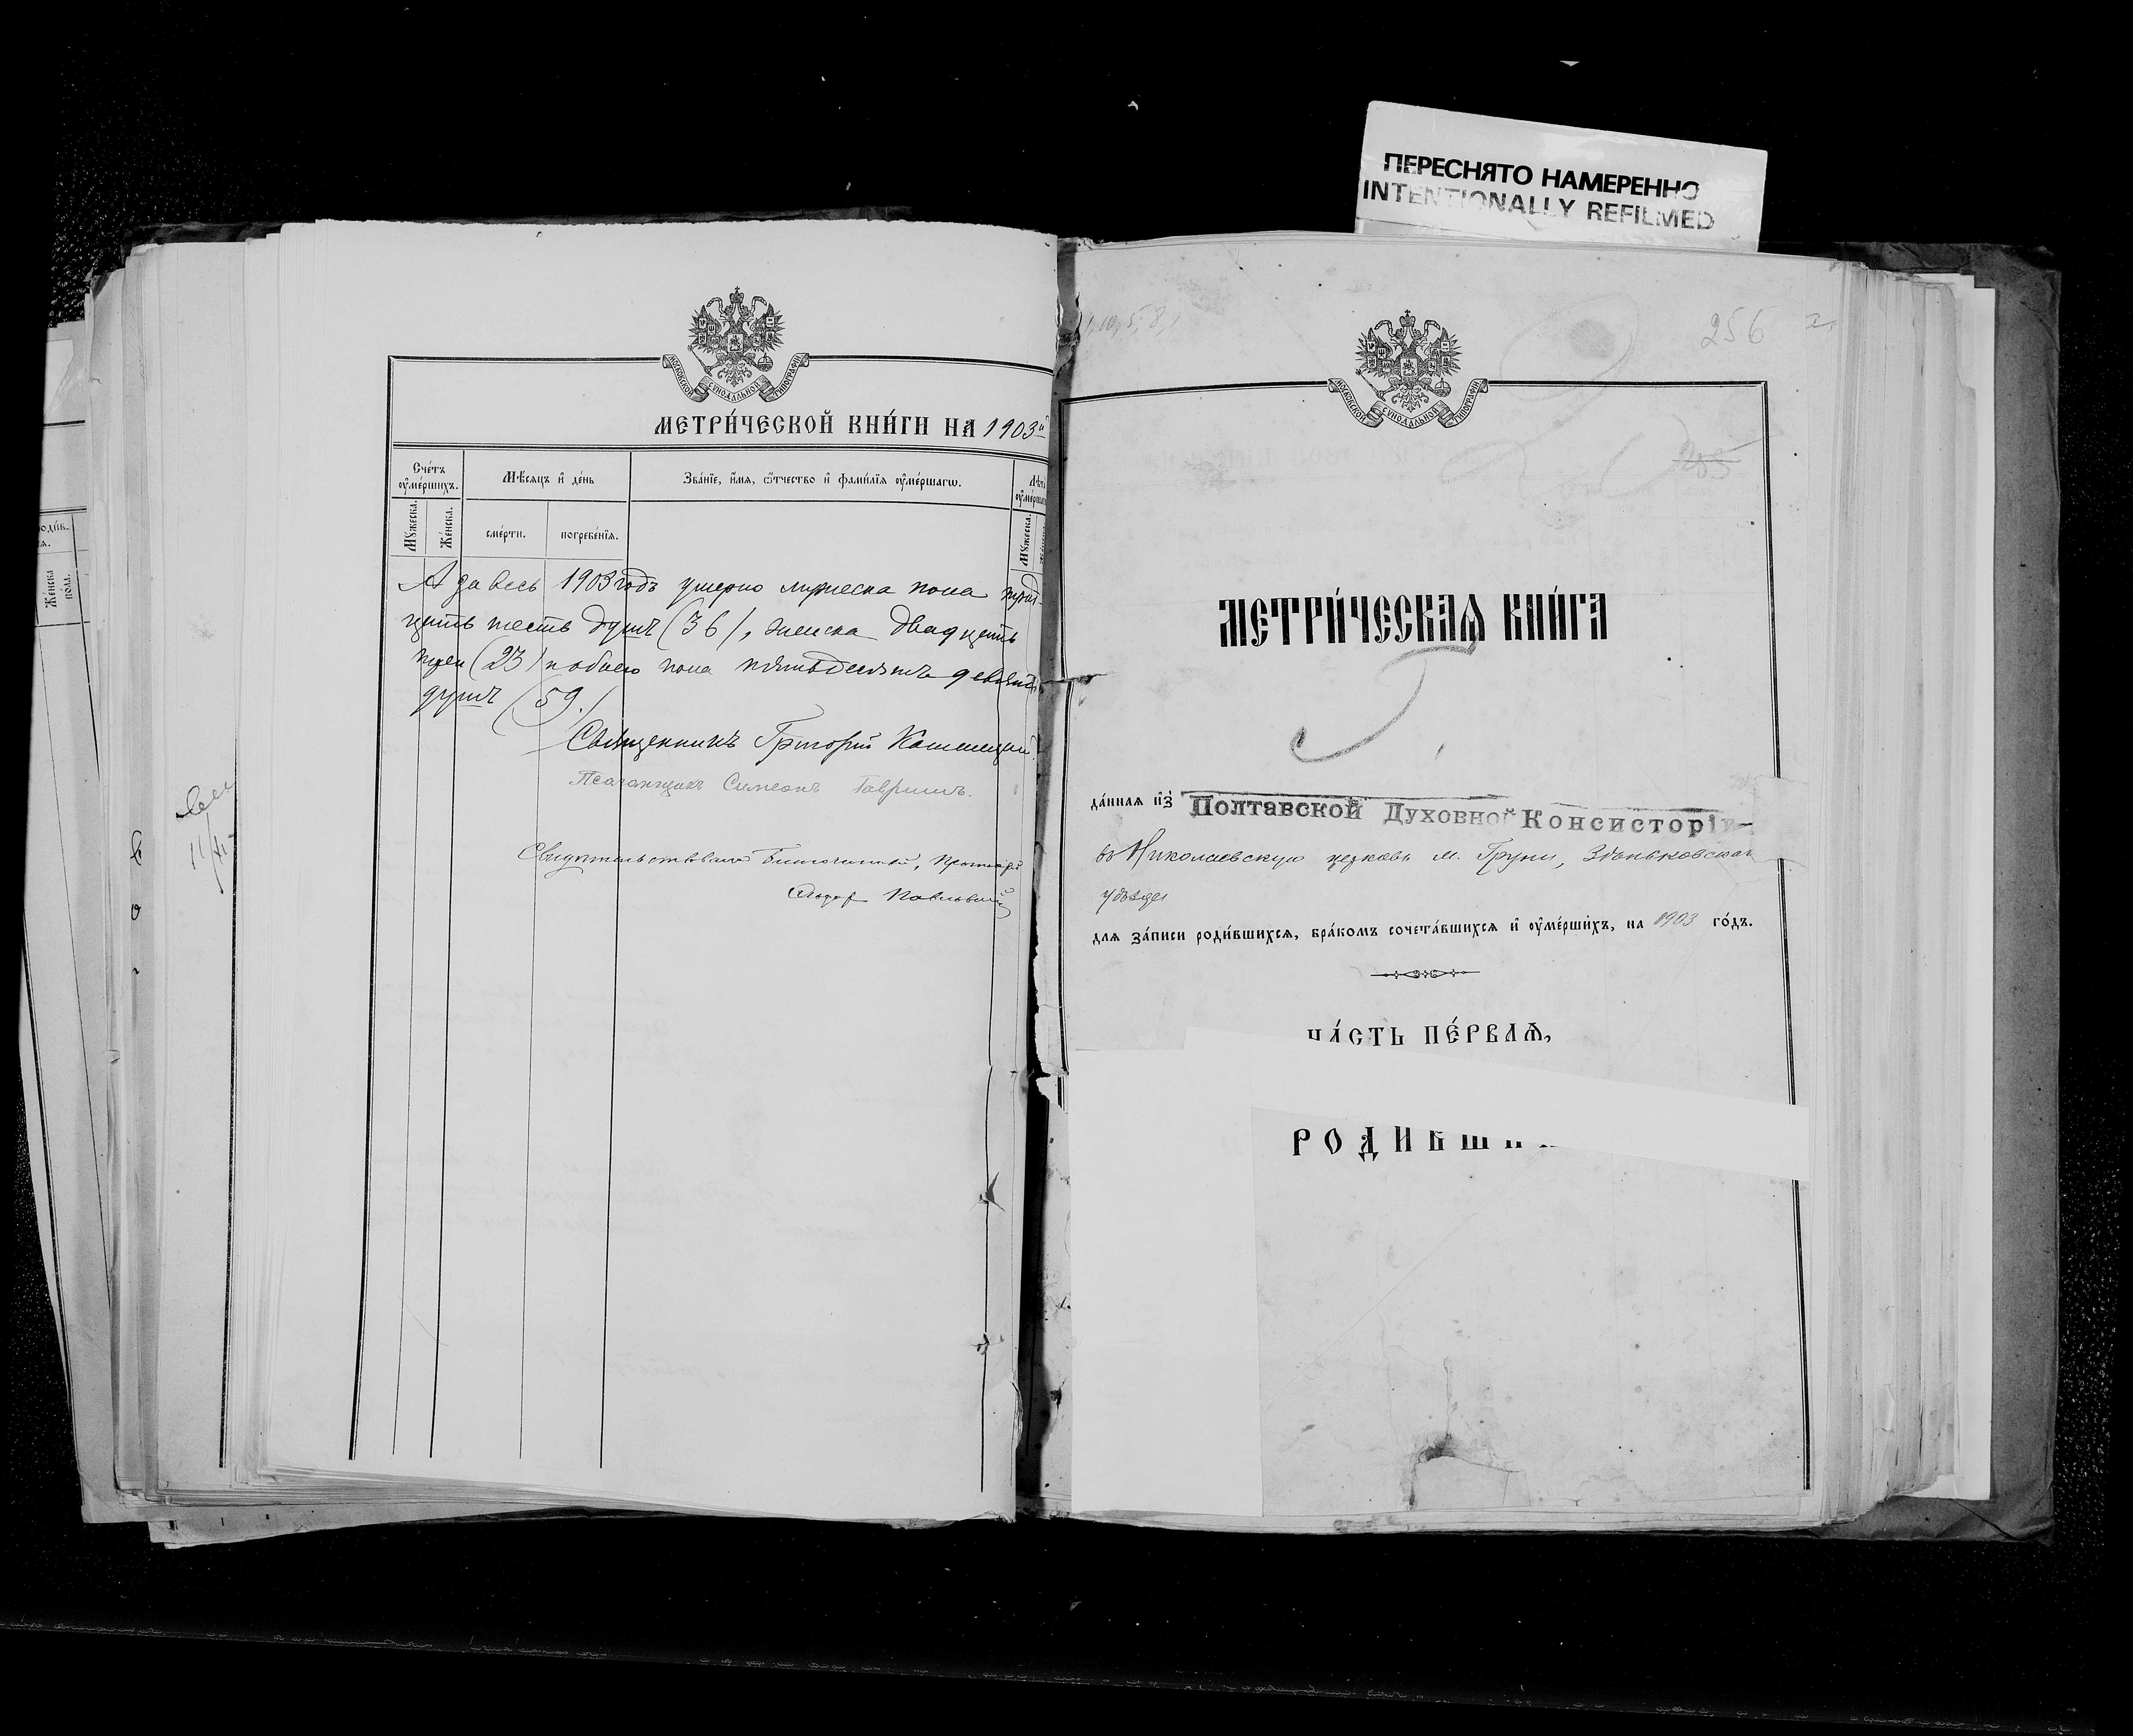 ПЕРЕСНЯТО НАМЕРЕННО
INTENTIONALLY REFILMED
МОСКОВСКОЙ СѴНОДАЛЬНОЙ ТИПОГРАФІИ
МЕТРИ́ЧЕСКОЙ КНИ́ГИ НА 1903й
Сче́тъ ᲂу҆ме́ршихъ.
Мѣ́сяцъ и҆ де́нь
Зва́нїе, и҆́мя, ѻ҆́тчество и҆ фами́лїя ᲂу҆ме́ршагѡ.
Мꙋ́жеска.
Же́нска.
сме́рти.
погребе́нїя.
Мꙋ́жеска.
А за весь 1903 годъ умерло мужеска пола трид-
цать шесть душъ (36), женска двадцать
три (23) и обоего пола пятьдесятъ девять
душъ (59.)
Священникъ Григорій
Псаломщикъ Симеонъ Гавришъ.
Свидѣтельствовалъ Благочинный, Протоіерей
Же́нска пола.
256
МОСКОВСКОЙ СѴНОДАЛЬНОЙ ТИПОГРАФІИ
255
МЕТРИ́ЧЕСКАѦ КНИ́ГА
да́нная и҆з̾ Полтавской Духовной Консисторіи
въ Николаевскую церковь м. Груни, Зѣньковскаго
уѣзда
для за́писи роди́вшихся, бра́комъ сочета́вшихся и҆ ᲂу҆ме́ршихъ, на 1903 го́дъ.
ЧА́СТЬ ПЕ́РВАѦ,
РОДИВШИ